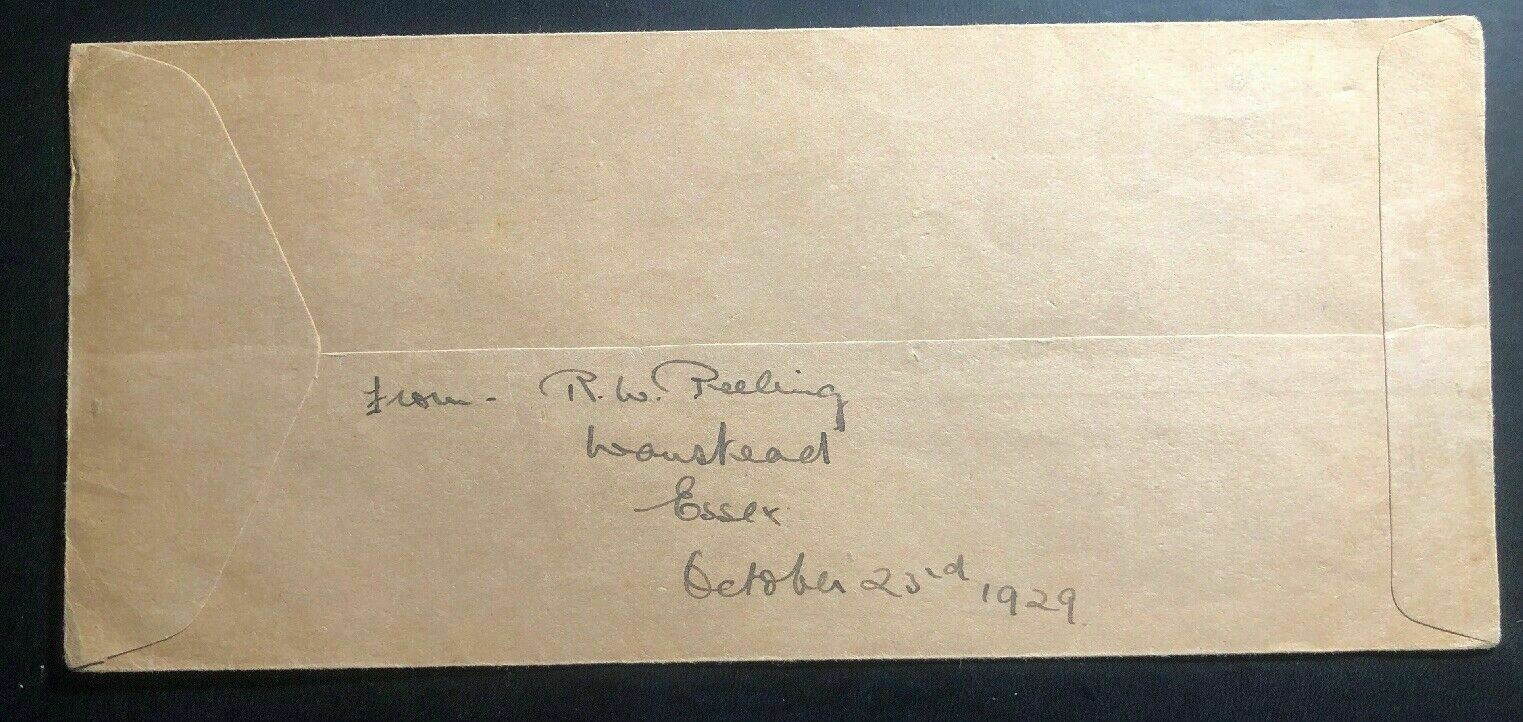 from - R. W. Peeling
Wanstead
Essex
October 23rd 1929